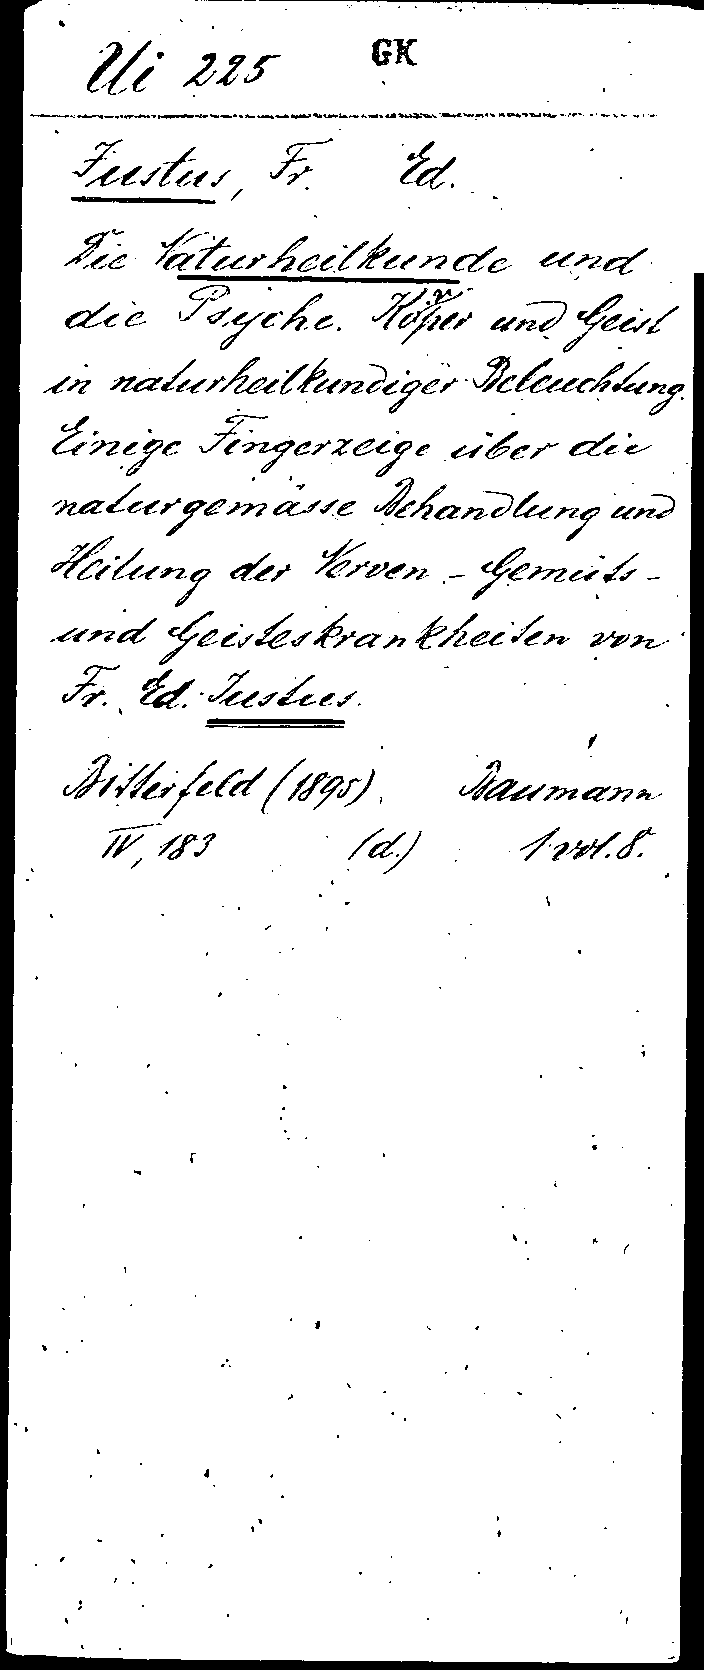 Ui 225 GK
Justus, Fr. Ed.
Die Naturheilkunde und
die Psyche. Körper und Geist
in naturheilkundiger Beleuchtung.
Einige Fingerzeige über die
naturgemässe Behandlung und
Heilung der Nerven - Gemüts -
und Geisteskrankheiten von
Fr. Ed. Justus.
Bitterfeld (1895). Baumann
IV, 183 (d.) 1 vol. 8°.